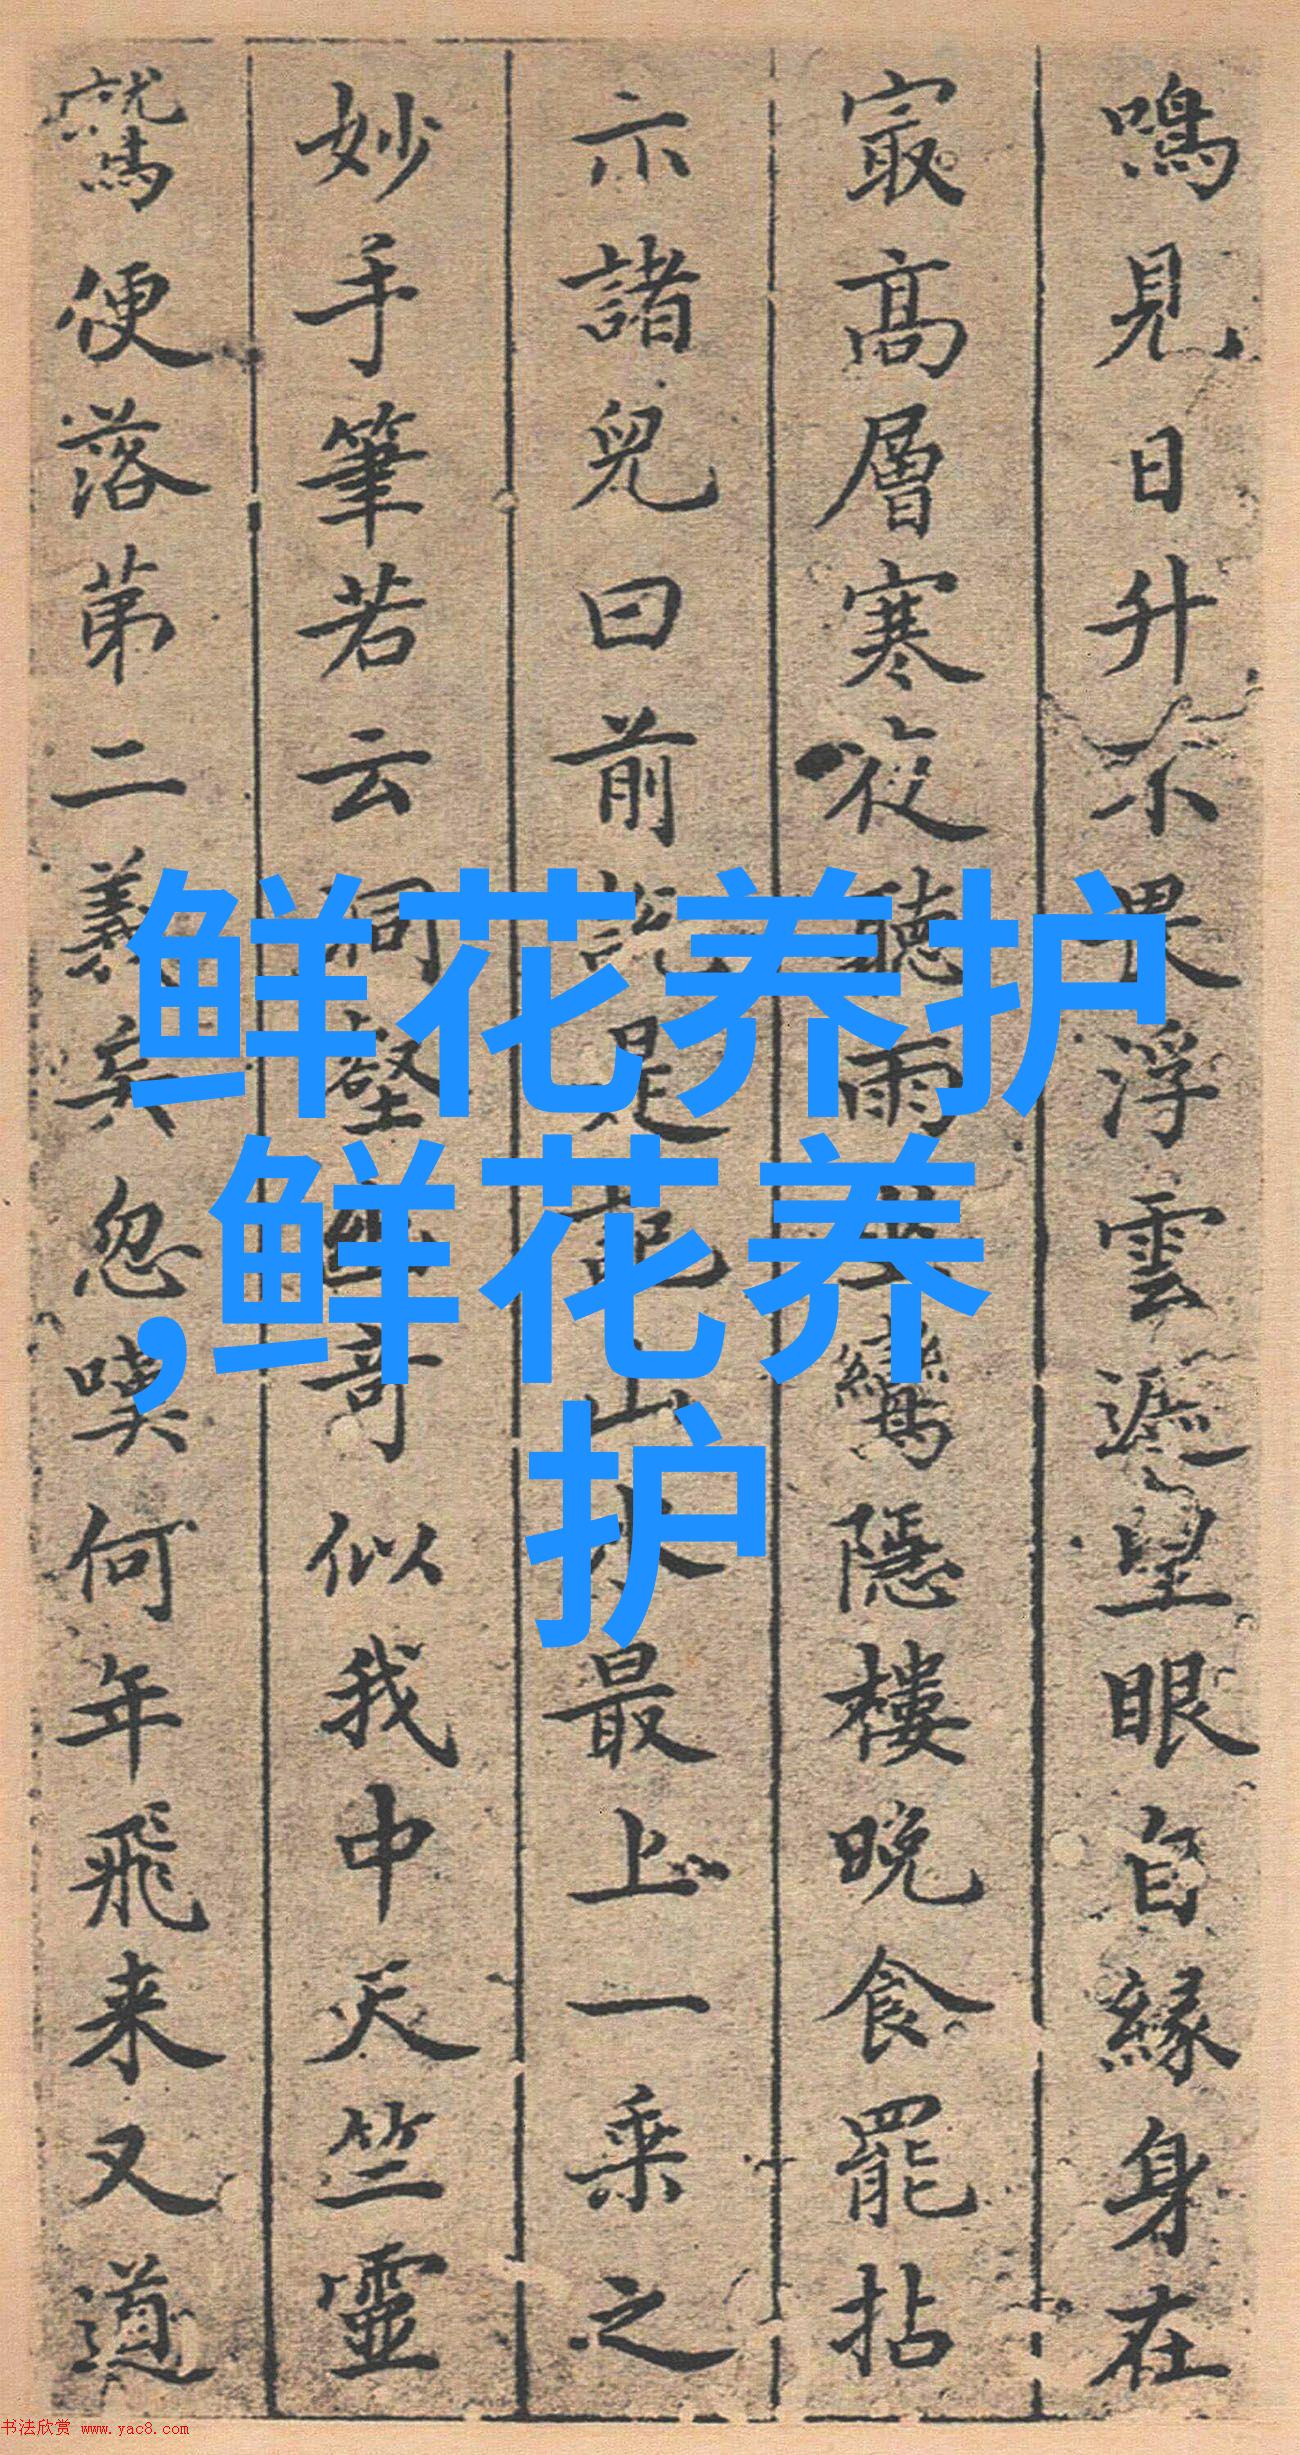 鳴見日升不畏浮雲遮望眼自緣身在
㝡高層寒夜聽雨鸞隱樓晚食罷拈
示諸兒曰前說是記山水最上一乘之
妙手筆若云洞壑幽奇似我中天竺靈
鷲便落苐二義矣忽嘆何年飛来又道
鲜花养护
,鲜花养
护
书法欣赏 www.yac8.com